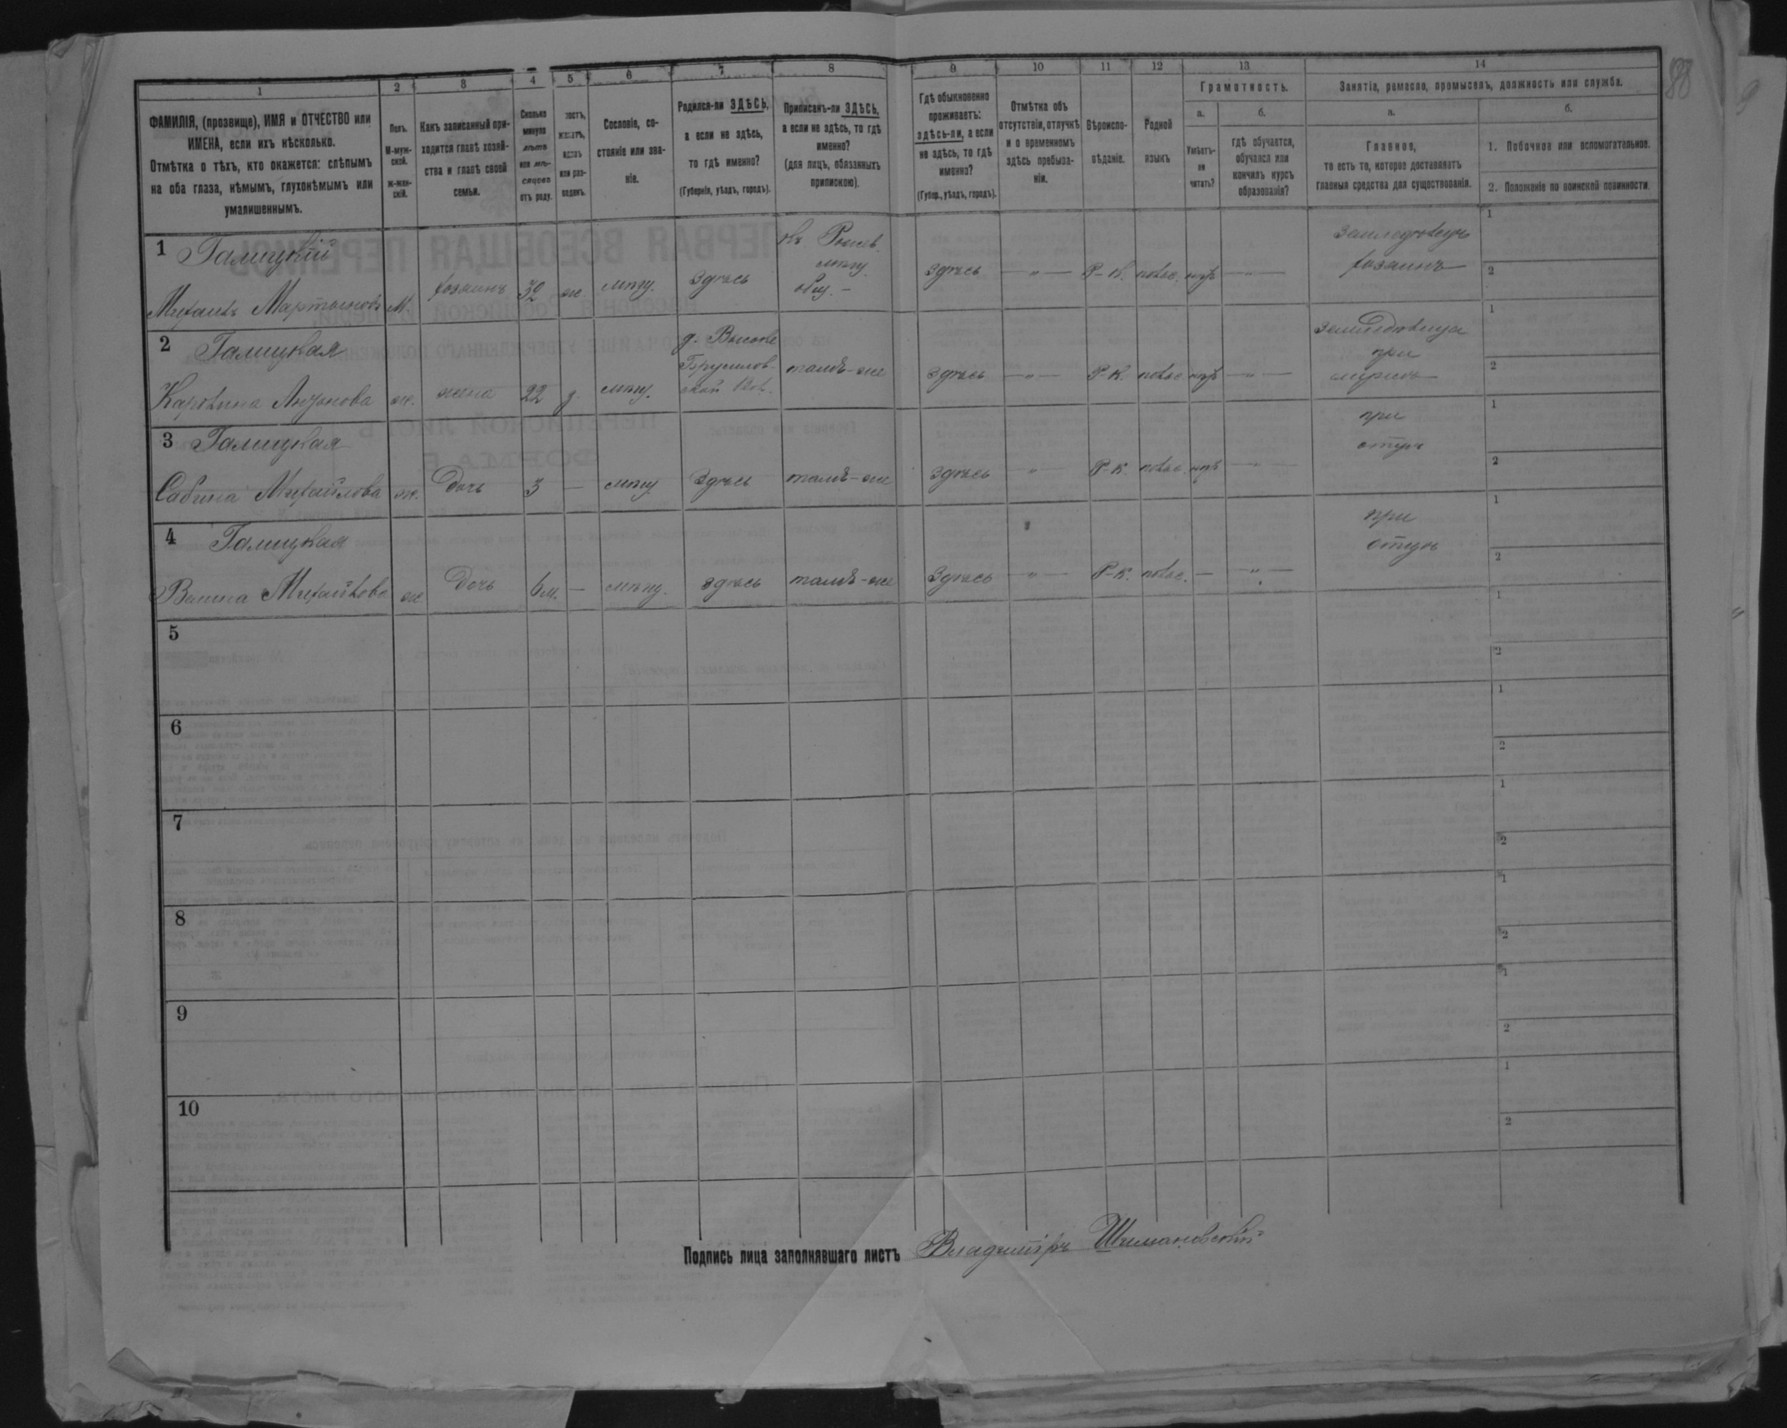 88
1 2 3 4 5 6 7 8 9 10 11 12 13 14
ФАМИЛІЯ, (прозвище), ИМЯ и ОТЧЕСТВО или
ИМЕНА, если ихъ нѣсколько.
Отмѣтка о тѣхъ, кто окажется: слѣпымъ
на оба глаза, нѣмымъ, глухонѣмымъ или
умалишеннымъ.
Полъ.
М-муж-
ской.
ж-жен-
скій.
Какъ записанный при-
ходится главѣ хозяй-
ства и главѣ своей
семьи.
Сколько
минуло
лѣтъ
или мѣ-
сяцевъ
отъ роду.
Сословіе, со-
стояніе или зва-
ніе.
Родился-ли ЗДѢСЬ,
а если не здѣсь,
то гдѣ именно?
(Губернія, уѣздъ, городъ).
Приписанъ-ли ЗДѢСЬ,
а если не здѣсь, то гдѣ
именно?
(для лицъ, обязанныхъ
припискою).
Гдѣ обыкновенно
проживаетъ:
здѣсь-ли, а если
не здѣсь, то гдѣ
именно?
(Губер., уѣздъ, городъ).
Отмѣтка объ
отсутствіи, отлучкѣ
и о временномъ
здѣсь пребыва-
ніи.
Вѣроиспо-
вѣданіе.
Родной
языкъ
Грамотность.
а.
Умѣетъ-
ли
читать?
б.
гдѣ обучается,
обучался или
кончилъ курсъ
образованія?
Занятіе, ремесло, промыселъ, должность или служба.
а.
Главное,
то есть то, которое доставляетъ
главныя средства для существованія.
б.
1. Побочное или вспомогательное.
2. Положеніе по воинской повинности.
1 Галицкій
Михаилъ Мартиновъ М. хозяинъ 32 ж мѣщ. Здѣсь мѣщ. Общ. Здѣсь — " — Р-К. польс. нѣтъ — " — хозяинъ 1 2
2 Галицкая
Каролина Антонова ж. жена 22 з. мѣщ. д. Высоке тамъ-же Здѣсь — " — Р-К. польс нѣтъ — " — при мужѣ 1 2
3 Галицкая
Сабина Михайлова ж. Дочь 3 — мѣщ Здѣсь тамъ-же Здѣсь " Р-К. польс. нѣтъ — " — при отцѣ 1 2
4 Галицкая
Михайлова ж Дочь 6 м. — мѣщ. здѣсь тамъ-же Здѣсь — " — Р-К. польс. — — " — при отцѣ 1 2
5 1 2
6 1 2
7 1 2
8 1 2
9 1 2
10 1 2
Подпись лица заполнявшаго листъ Владиміръ Шимановскій